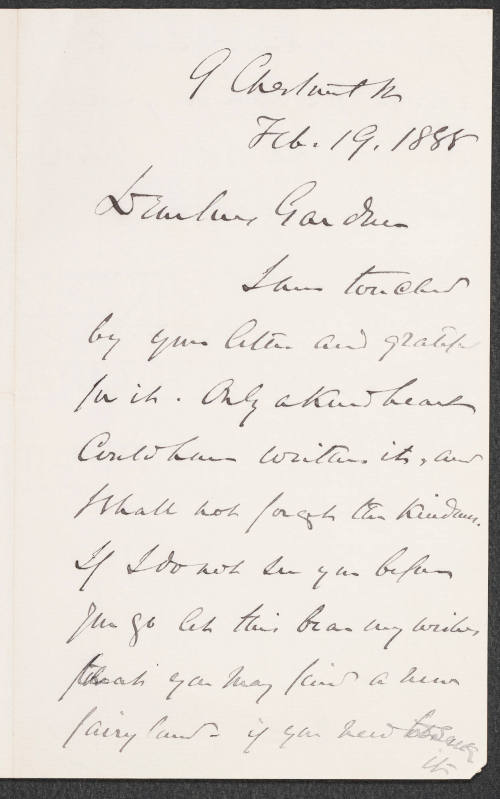 9 Chestnut St
Feb. 19. 1888
Dear Mrs Gardner
I am touched
by your letter and grateful
for it. Only a kind heart
could have written it, and
I shall not forget the kindness.
If I do not see you before
you go let this bear my wishes
that you may find a new
fairyland - if you need
it